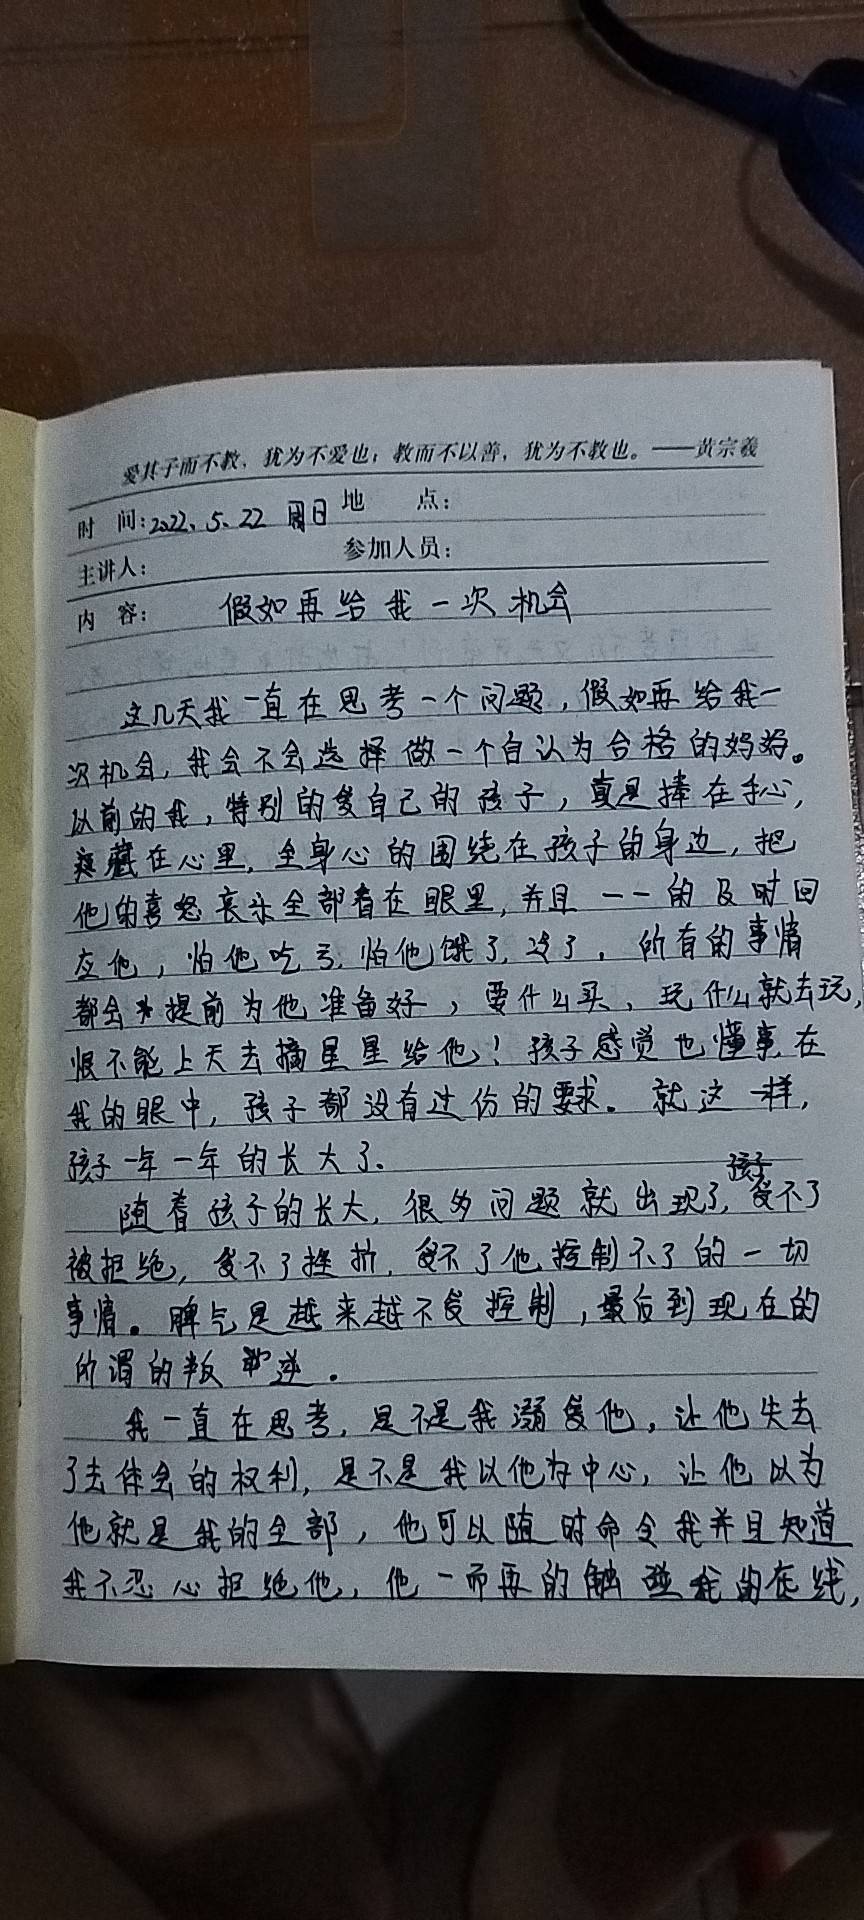 爱其子而不教，犹为不爱也；教而不以善，犹为不教也。——黄宗羲
时 间：2022、5、22 周日 地 点：
主讲人： 参加人员：
内 容： 假如再给我一次机会
这几天我一直在思考一个问题，假如再给我一
次机会，我会不会选择做一个自认为合格的妈妈。
以前的我，特别的爱自己的孩子，真是捧在手心，
藏在心里，全身心的围绕在孩子的身边，把
他的喜怒哀乐全部看在眼里，并且一一的及时回
应他，怕他吃亏，怕他饿了，冷了，所有的事情
都会提前为他准备好，要什么买，玩什么就去玩，
恨不能上天去摘星星给他！孩子感觉也懂事，在
我的眼中，孩子都没有过份的要求。就这一样，
孩子一年一年的长大了。
随着孩子的长大，很多问题就出现了，孩子受不了
被拒绝，受不了挫折，受不了他控制不了的一切
事情。脾气是越来越不受控制，最后到现在的
所谓的叛逆。
我一直在思考，是不是我溺爱他，让他失去
了去体会的权利，是不是我以他为中心，让他以为
他就是我的全部，他可以随时命令我并且知道
我不忍心拒绝他，他一而再的触碰我的底线，